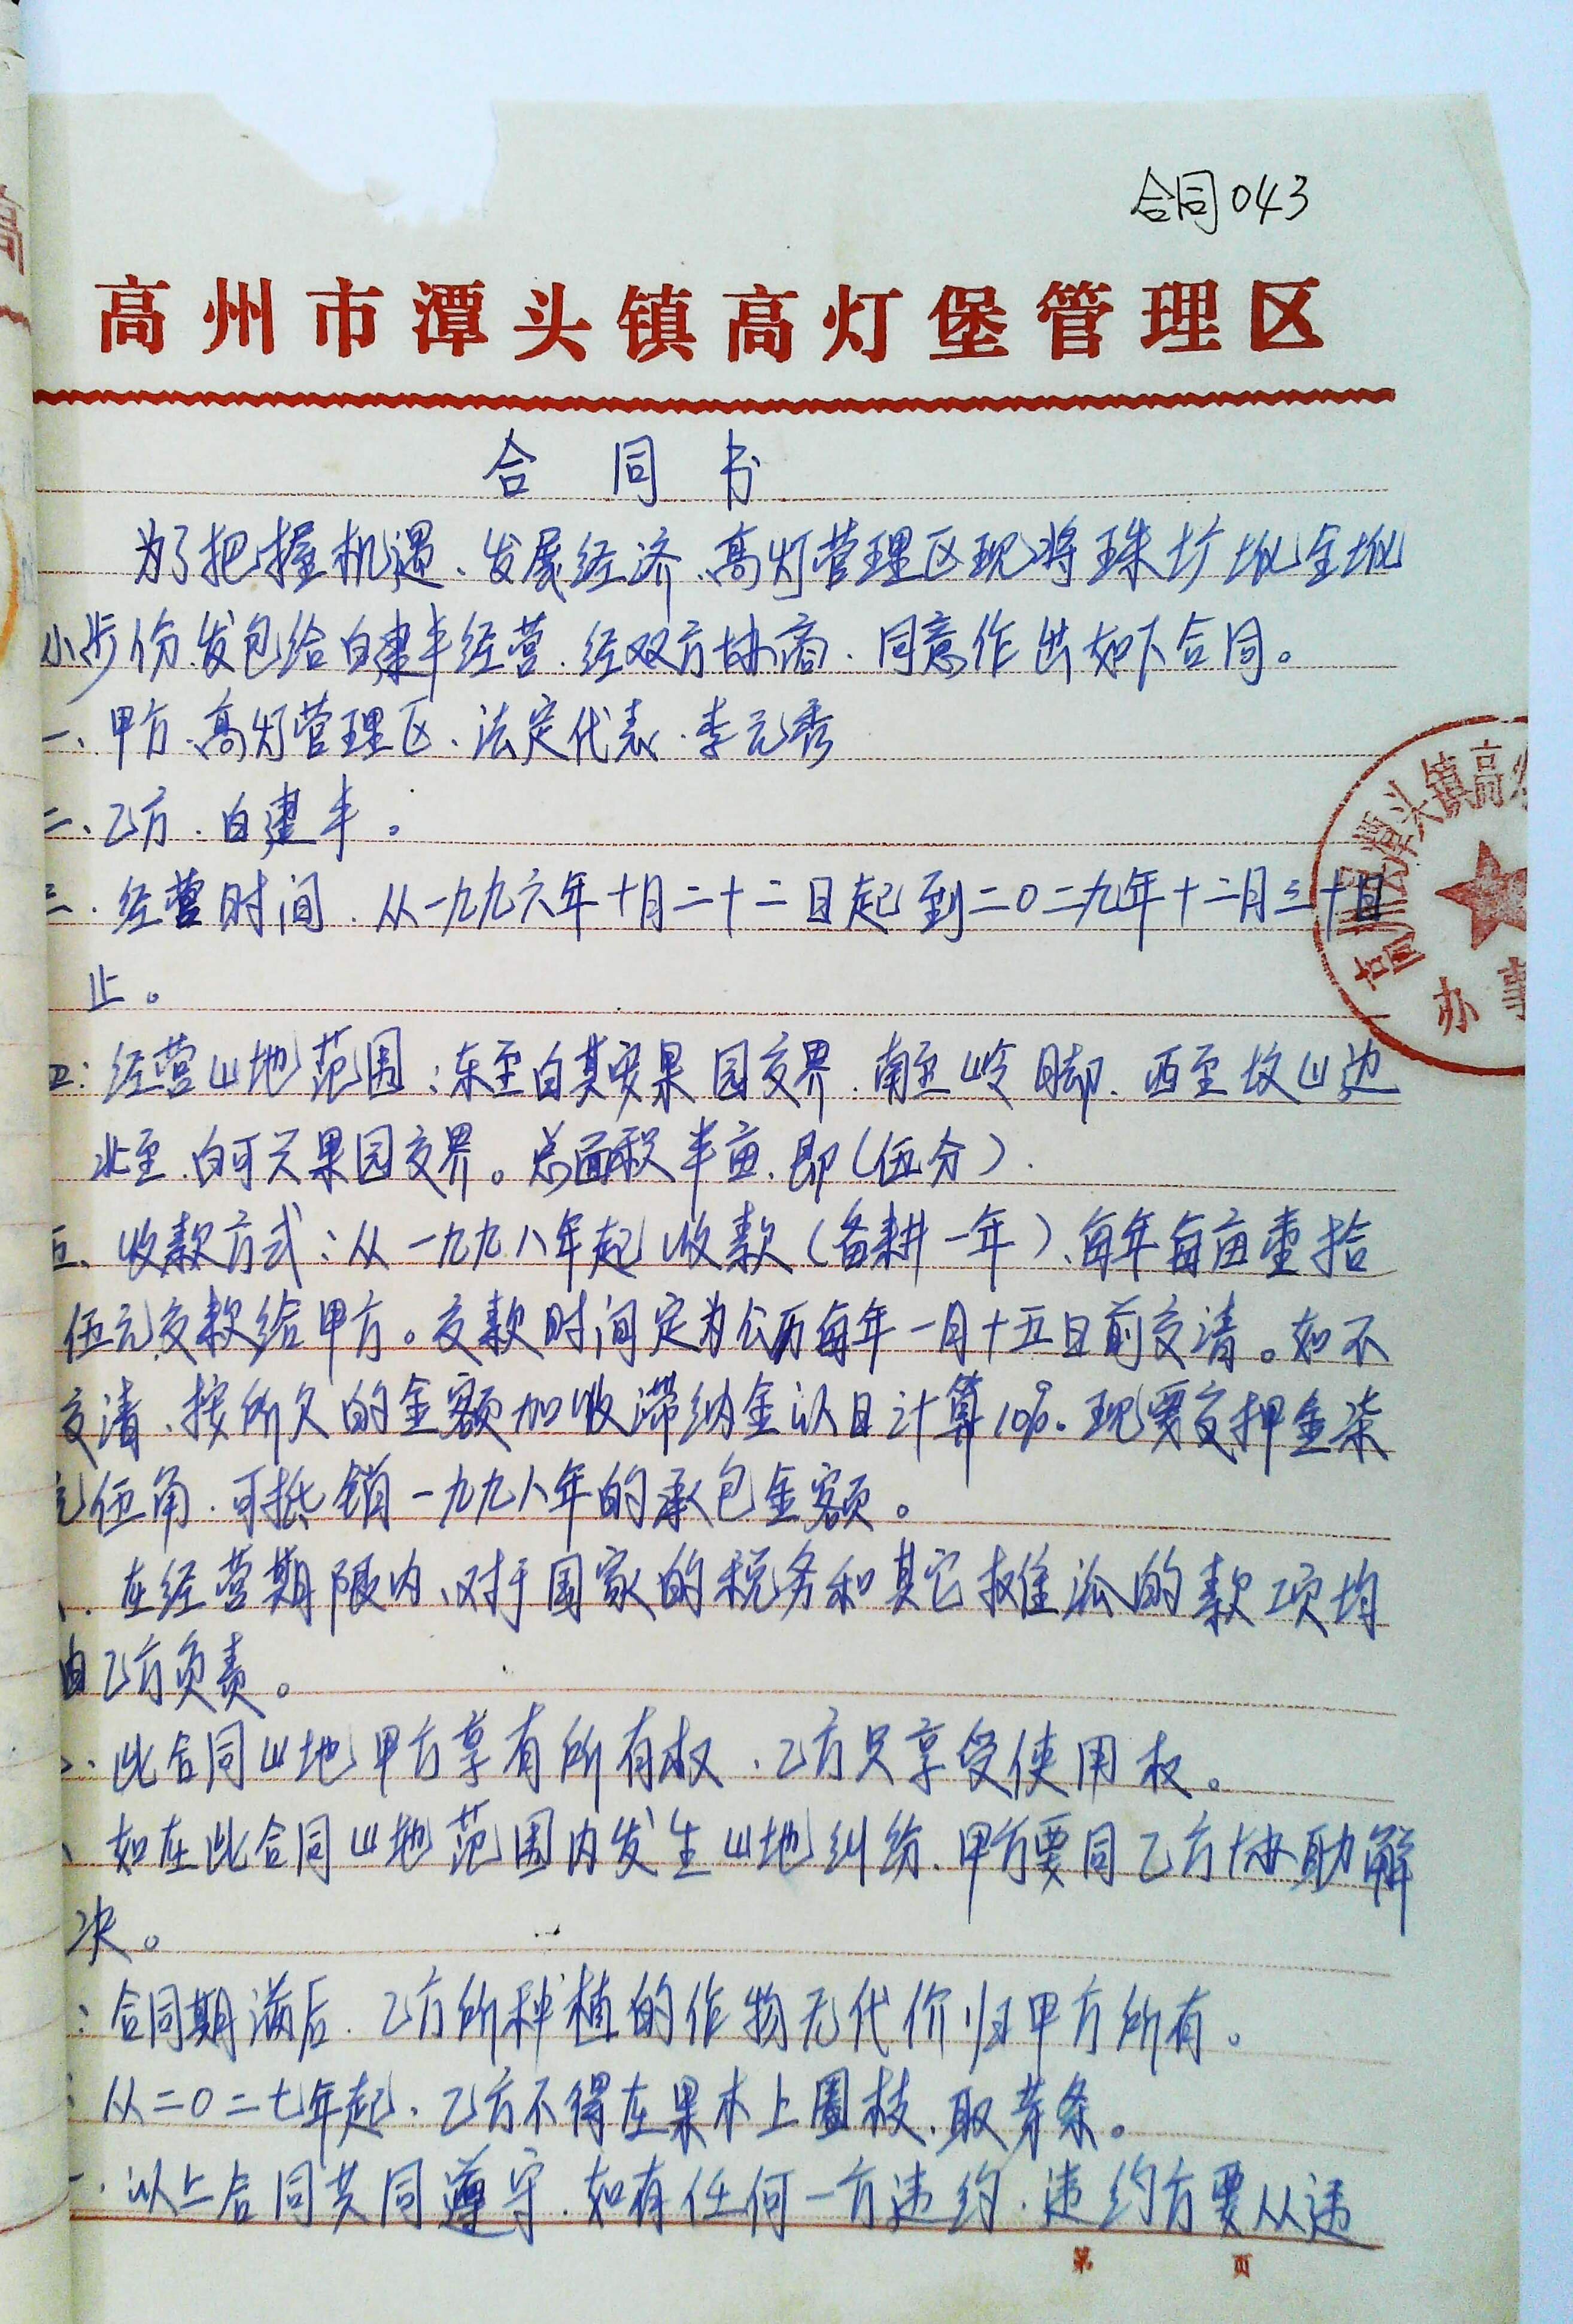 合同043
高州市潭头镇高灯堡管理区
合同书
为了把握机遇、发展经济、高灯管理区现将珠圹坬全坬
小步份发包给白建丰经营.经双方协商.同意作出如下合同。
一、甲方、高灯管理区、法定代表.李元秀
二、乙方.白建丰。
三.经营时间.从一九九六年十月二十二日起到二0二九年十二月三十日
止。
四:经营山地范围:东至白其安果园交界.南至岭脚.西至坟山边
北至.白可兴果园交界。总面积半亩.即(伍分).
五、收款方式:从一九九八年起收款(备耕一年)、每年每亩壹拾
伍元交款给甲方。交款时间定为公历每年一月十五日前交清。如不
交清、按所欠的金额加收滞纳金以日计算10%。现要交押金柒
元伍角.可抵销一九九八年的承包金额。
.在经营期限内、对于国家的税务和其它摊派的款项均
由乙方负责。
.此合同山地甲方享有所有权.乙方只享受使用权。
、如在此合同山地范围内发生山地纠纷.甲方要同乙方协助解
决。
:合同期满后.乙方所种植的作物无代价归甲方所有。
:从二0二七年起.乙方不得在果木上圈枝.取芽条。
一.以上合同共同遵守.如有任何一方违约.违约方要从违
第 页
高州市潭头镇高灯
办事